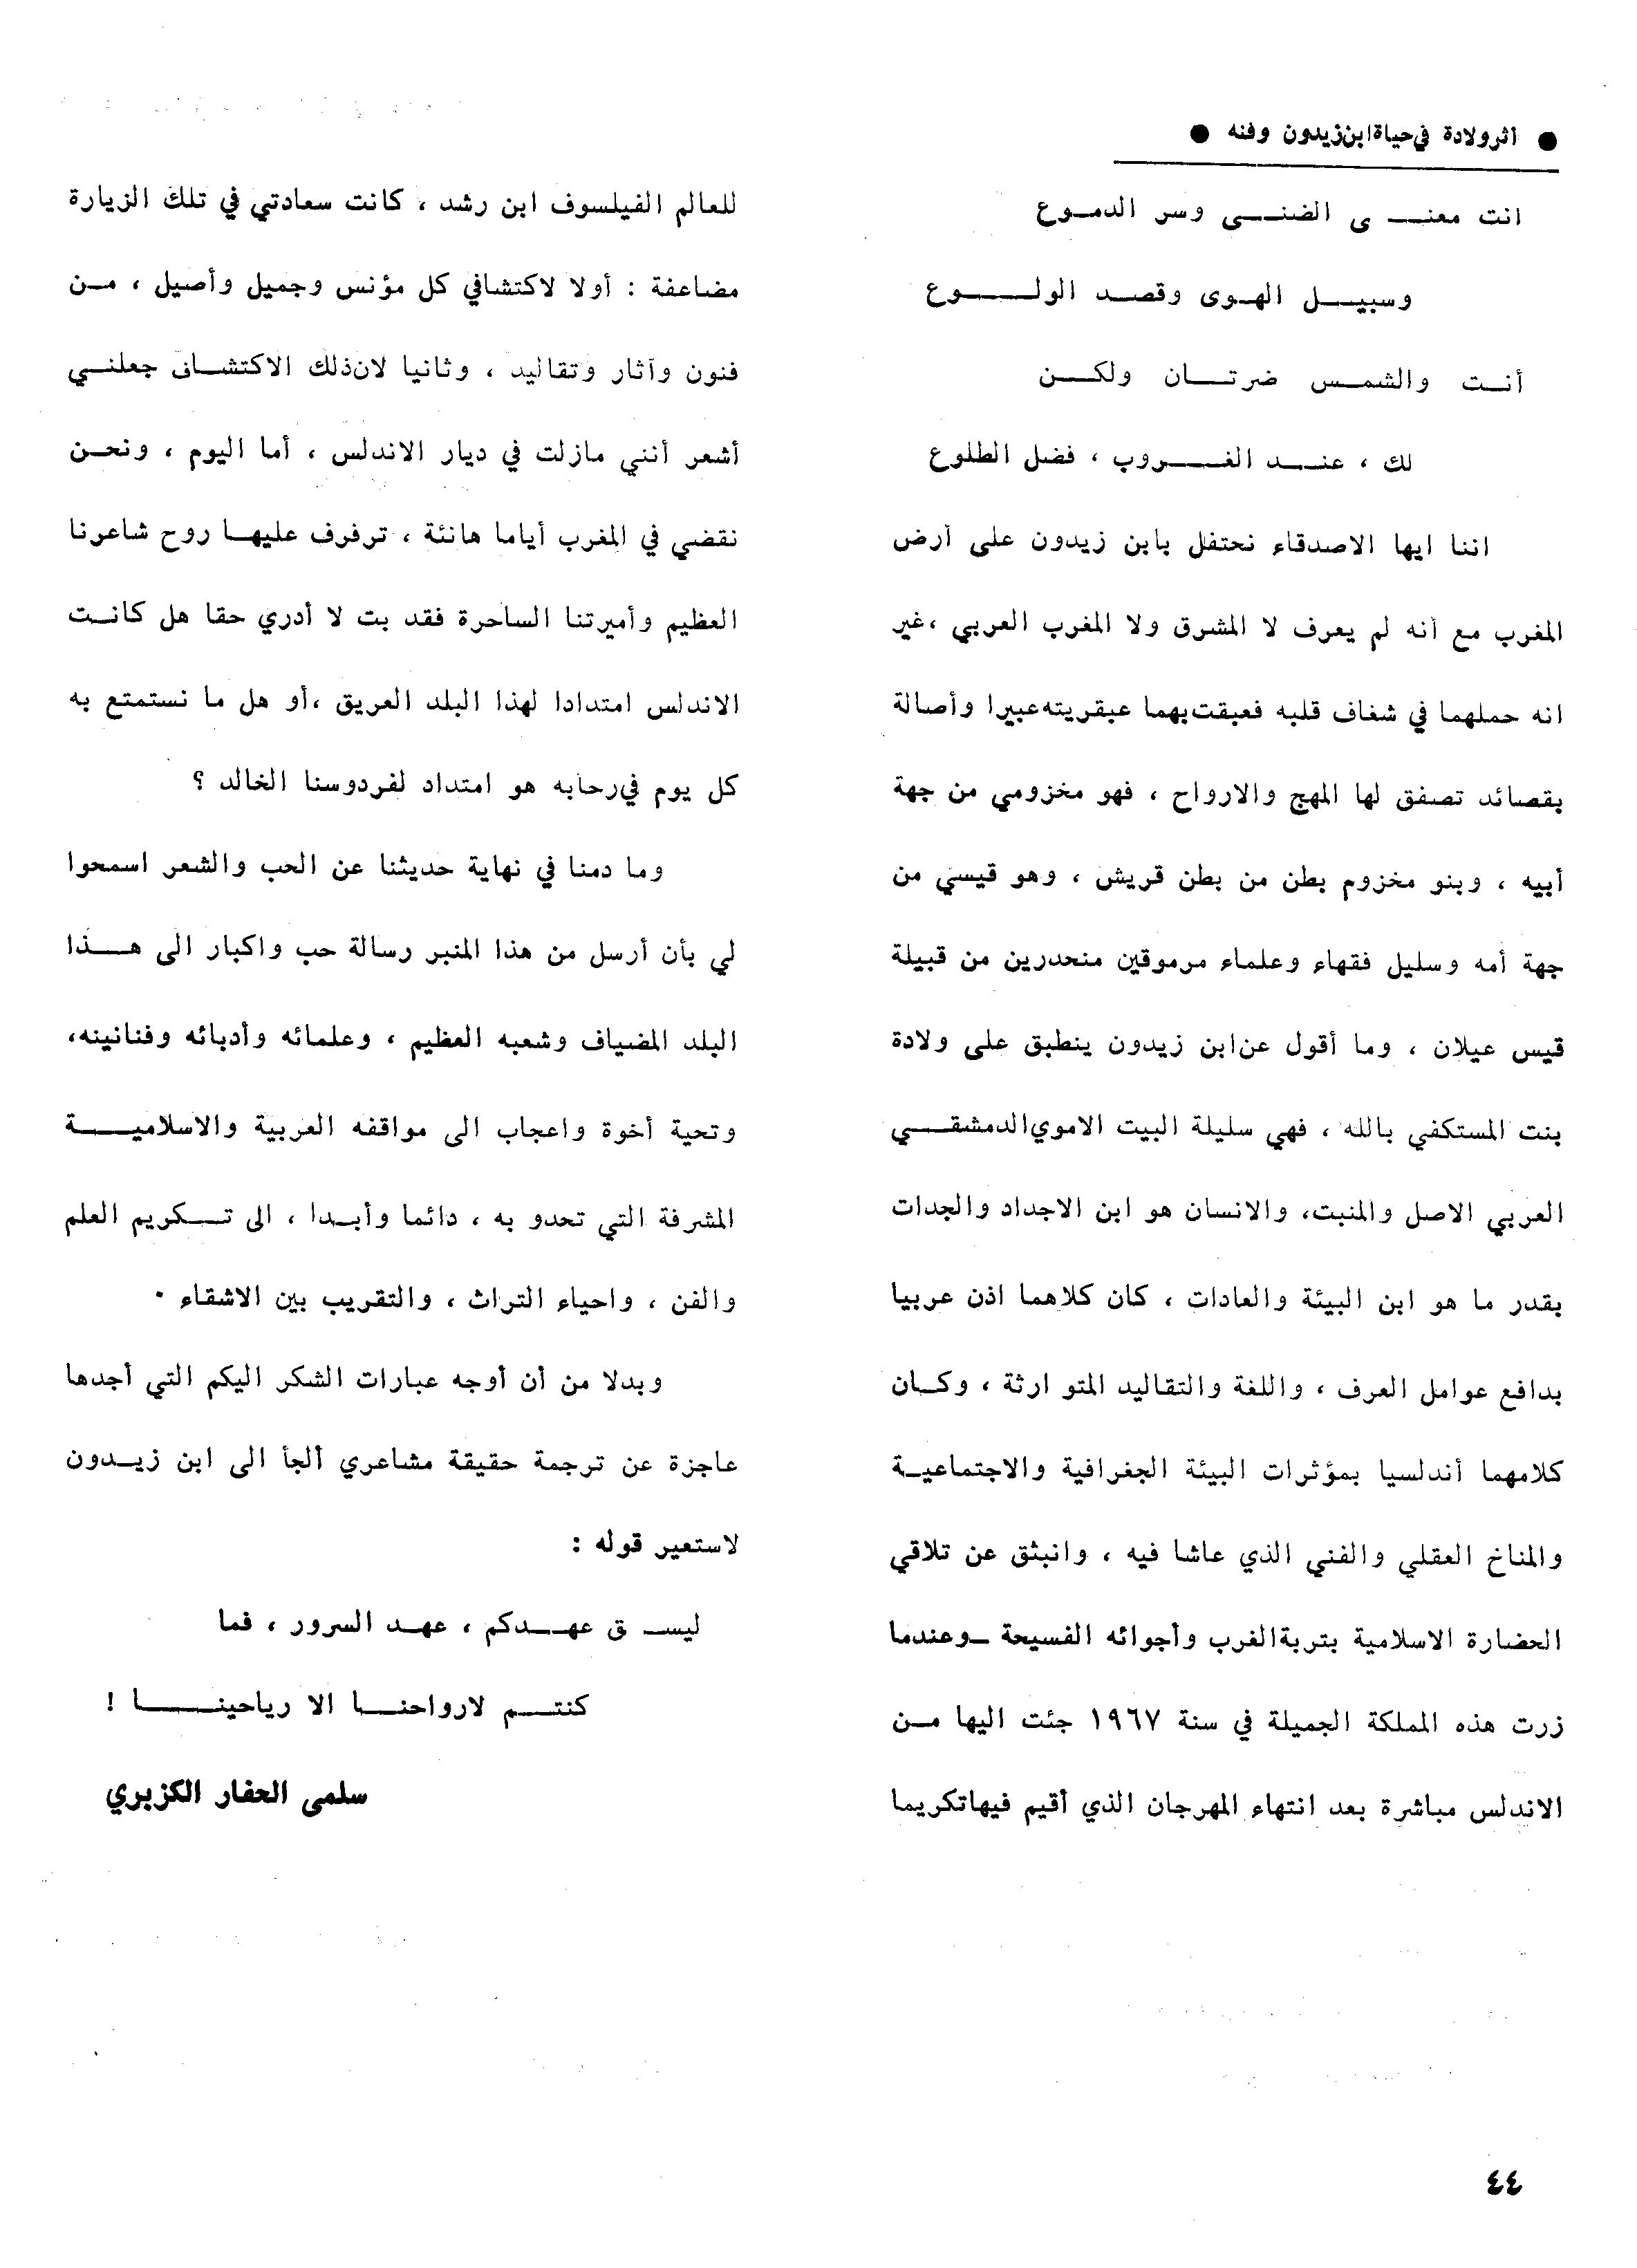 ● أثر ولادة في حياة ابن زيدون وفنه ●
انت معنى الضنى وسر الدموع
وسبيل الهوى وقصد الولوع
أنت والشمس ضرتان ولكن
لك ، عند الغروب ، فضل الطلوع
اننا ايها الاصدقاء نحتفل بابن زيدون على أرض
المغرب مع أنه لم يعرف لا المشرق ولا المغرب العربي ،غير
انه حملهما في شغاف قلبه فعبقت بهما عبقريته عبيرا وأصالة
بقصائد تصفق لها المهج والارواح ، فهو مخزومي من جهة
أبيه ، وبنو مخزوم بطن من بطن قريش ، وهو قيسي من
جهة أمه وسليل فقهاء وعلماء مرموقين منحدرين من قبيلة
قيس عيلان ، وما أقول عن ابن زيدون ينطبق على ولادة
بنت المستكفي بالله ، فهي سليلة البيت الاموي الدمشقي
العربي الاصل والمنبت، والانسان هو ابن الاجداد والجدات
بقدر ما هو ابن البيئة والعادات ، كان كلاهما اذن عربيا
بدافع عوامل العرف ، واللغة والتقاليد المتوارثة ، وكان
كلامهما أندلسيا بمؤثرات البيئة الجغرافية والاجتماعية
والمناخ العقلي والفني الذي عاشا فيه ، وانبثق عن تلاقي
الحضارة الاسلامية بتربة الغرب وأجوائه الفسيحة ـ وعندما
زرت هذه المملكة الجميلة في سنة ١٩٦٧ جئت اليها من
الاندلس مباشرة بعد انتهاء المهرجان الذي أقيم فيها تكريما
للعالم الفيلسوف ابن رشد ، كانت سعادتي في تلك الزيارة
مضاعفة : أولا لاكتشافي كل مؤنس وجميل وأصيل ، من
فنون وآثار وتقاليد ، وثانيا لان ذلك الاكتشاف جعلني
أشعر أنني مازلت في ديار الاندلس ، أما اليوم ، ونحن
نقضي في المغرب أياما هانئة ، ترفرف عليها روح شاعرنا
العظيم وأميرتنا الساحرة فقد بت لا أدري حقا هل كانت
الاندلس امتدادا لهذا البلد العريق ،أو هل ما نستمتع به
كل يوم في رحابه هو امتداد لفردوسنا الخالد ؟
وما دمنا في نهاية حديثنا عن الحب والشعر اسمحوا
لي بأن أرسل من هذا المنبر رسالة حب واكبار الى هذا
البلد المضياف وشعبه العظيم ، وعلمائه وأدبائه وفنانينه،
وتحية أخوة واعجاب الى مواقفه العربية والاسلامية
المشرفة التي تحدو به ، دائما وأبدا ، الى تكريم العلم
والفن ، واحياء التراث ، والتقريب بين الاشقاء ٠
وبدلا من أن أوجه عبارات الشكر اليكم التي أجدها
عاجزة عن ترجمة حقيقة مشاعري ألجأ الى ابن زيدون
لاستعير قوله :
ليسق عهدكم ، عهد السرور ، فما
كنتم لارواحنا الا رياحينا !
سلمى الحفار الكزبري
٤٤